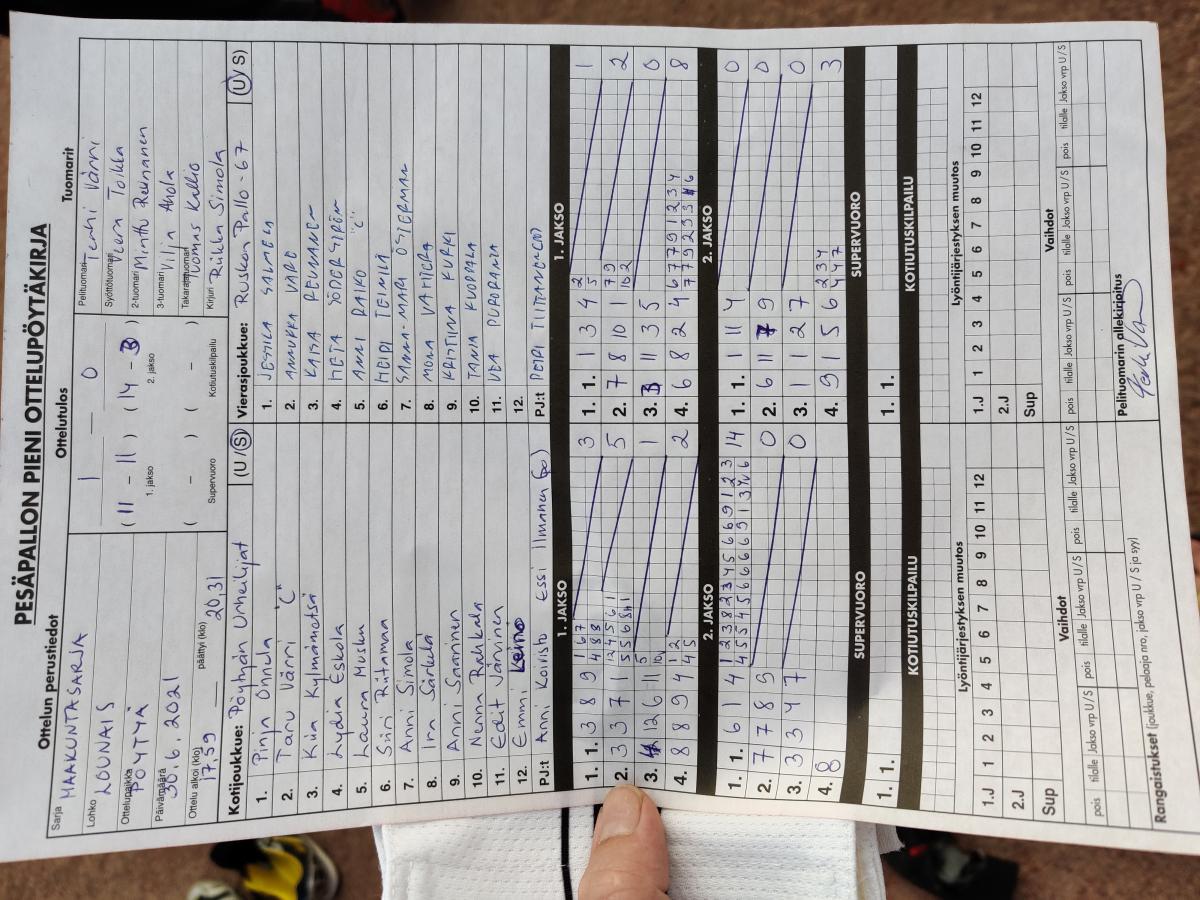 PESÄPALLON PIENI OTTELUPÖYTÄKIRJA
Ottelun perustiedot
Ottelutulos
Tuomarit
Sarja
MAAKUNTASARJA
Lohko
LOUNAIS
Ottelupaikka
PÖYTYÄ
Päivämäärä
30.6.2021
Ottelu alkoi (klo)
17,59
päättyi (klo)
20,31
1 — 0
( 11 - 11 ) ( 14 - 3 )
1. jakso
2. jakso
( - ) ( - )
Supervuoro
Kotiutuskilpailu
Pelituomari
Syöttötuomari
Veera Toikka
2-tuomari
3-tuomari
Vilja Ahola
Takarajatuomari
Tuomas Kallio
Kirjuri
Riikka Simola
Kotijoukkue: Pöytyän Urheilijat (U / S)
1. Pinja Öhnula
2. Tanu Vänni "C"
3. Kiia Kylmämetsä
4. Lydia Eskola
5. Laura Musku
6. Siiri Riitamaa
7. Anni Simola
8. Ira Särkelä
9. Anni Saarinen
10. Nenna Raikkala
11. Edit Järvinen
12. Emmi
PJ:t Anni Koivisto Essi Ilmanen
Vierasjoukkue: Ruskon Pallo - 67 (U / S)
1. JESSICA SALMELA
2. ANNUKKA VARE
3. KAISA
4. META SÖDERSTRÖM
5. ANNI RAIKO "C"
6. HEIDI TEIMILÄ
7. SANNA-MARI ÖSTERMAN
8. MONA VAHTERA
9. KRISTIINA KURKI
10. TANJA KUOPPALA
11. VEA PURORANTA
12.
PJ:t PETRI
1. JAKSO
1. JAKSO
1. 1. 3 8 9 1 6 7 3
4 8 8
2. 3 3 7 1 1 2 4 5 6 1 5
5 5 6 8 11 1
3. 12 6 11 5 1
10
4. 8 8 9 4 1 2 2
4 5
1. 1. 1 3 4 2 1
5
2. 7 8 10 1 7 9 2
10 12
3. 3 11 3 5 0
4. 6 8 2 4 6 7 7 9 1 2 3 4 8
2. JAKSO
2. JAKSO
1. 1. 6 1 4 1 2 3 8 2 3 4 5 6 6 9 1 2 3 14
2. 7 7 8 9 0
3. 3 3 4 7 0
4. 8
1. 1. 1 11 4 0
2. 6 11 7 9 0
3. 1 1 2 7 0
4. 9 1 5 6 2 3 4 3
4 4 7
SUPERVUORO
SUPERVUORO
1. 1.
1. 1.
KOTIUTUSKILPAILU
KOTIUTUSKILPAILU
Lyöntijärjestyksen muutos
Lyöntijärjestyksen muutos
1.J 1 2 3 4 5 6 7 8 9 10 11 12
2.J
Sup
1.J 1 2 3 4 5 6 7 8 9 10 11 12
2.J
Sup
Vaihdot
Vaihdot
pois tilalle Jakso vrp U / S pois tilalle Jakso vrp U / S pois tilalle Jakso vrp U / S
pois tilalle Jakso vrp U / S pois tilalle Jakso vrp U / S pois tilalle Jakso vrp U / S
Rangaistukset (joukkue, pelaaja nro, jakso vrp U / S ja syy)
Pelituomarin allekirjoitus